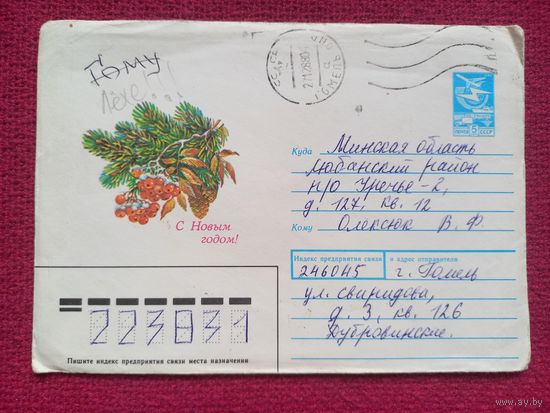 Тома
Лёхе!..
ГОМЕЛЬ
ПОЧТА 5 СССР
Куда Минская область
Любанский район
п/о Уречье-2,
д. 127, кв. 12
Кому Олексюк В. Ф.
С Новым
годом!
Индекс предприятия связи и адрес отправителя
246045 г. Гомель
ул. Свиридова,
д. 3, кв. 126
Дубровинские.
223831
Пишите индекс предприятия связи места назначения
www.ay.by